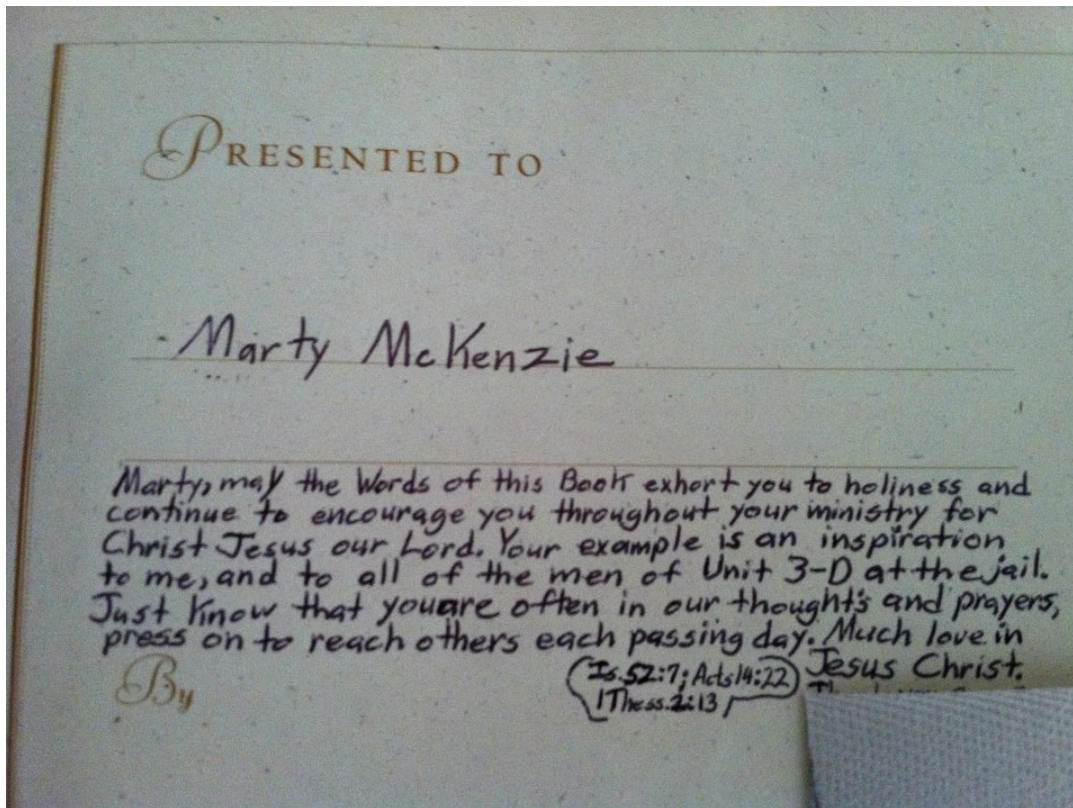 PRESENTED TO
Marty McKenzie
Marty, may the Words of this Book exhort you to holiness and
continue to encourage you throughout your ministry for
Christ Jesus our Lord. Your example is an inspiration
to me, and to all of the men of Unit 3-D at the jail.
Just know that you are often in our thought's and prayers,
press on to reach others each passing day. Much love in
Jesus Christ.
Is. 52:7; Acts 14:22
1 Thess. 2:13
By